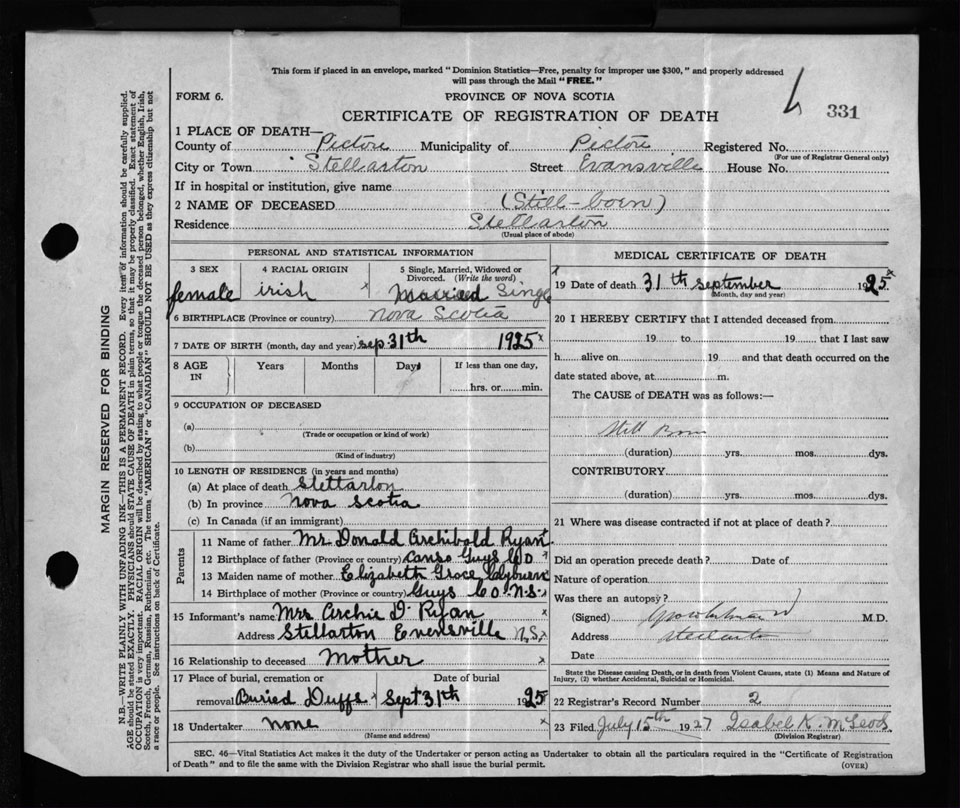 This form if placed in an envelope, marked "Dominion Statistics—Free, penalty for improper use $300," and properly addressed
will pass through the Mail "FREE."
FORM 6.
PROVINCE OF NOVA SCOTIA
331
CERTIFICATE OF REGISTRATION OF DEATH
1 PLACE OF DEATH—
County of Pictou Municipality of Pictou Registered No.
(For use of Registrar General only)
City or Town Stellarton Street Evansville House No.
If in hospital or institution, give name
2 NAME OF DECEASED (Still-born)
Residence Stellarton
(Usual place of abode)
PERSONAL AND STATISTICAL INFORMATION
3 SEX 4 RACIAL ORIGIN 5 Single, Married, Widowed or
Divorced. (Write the word)
female irish x Married Single
6 BIRTHPLACE (Province or country) Nova Scotia
7 DATE OF BIRTH (month, day and year) Sep 31th 1925 x
8 AGE IN Years Months Days If less than one day,
hrs. or min.
9 OCCUPATION OF DECEASED
(a)
(Trade or occupation or kind of work)
(b)
(Kind of industry)
10 LENGTH OF RESIDENCE (in years and months)
(a) At place of death Stellarton
(b) In province Nova Scotia
(c) In Canada (if an immigrant)
Parents
11 Name of father Mr Donald Archibald Ryan
12 Birthplace of father (Province or country) Canso Guys Co x
13 Maiden name of mother Elizabeth Grace
14 Birthplace of mother (Province or country) Guys Co. N.S. x
15 Informant's name Mrs Archie D. Ryan x
Address Stellarton Evensville N.S. x
16 Relationship to deceased Mother x
17 Place of burial, cremation or Date of burial
removal Buried Duffs x Sept 31th 1925
18 Undertaker none x
(Name and address)
MEDICAL CERTIFICATE OF DEATH
x
19 Date of death 31th September 1925 x
(Month, day and year)
20 I HEREBY CERTIFY that I attended deceased from
19 to 19 that I last saw
h alive on 19 and that death occurred on the
date stated above, at m.
The CAUSE of DEATH was as follows:—
Still Born
(duration) yrs. mos. dys.
CONTRIBUTORY
(duration) yrs. mos. dys.
21 Where was disease contracted if not at place of death?
Did an operation precede death? Date of
Nature of operation
Was there an autopsy?
(Signed) M.D.
Address Stellarton
Date
State the Disease causing Death, or in death from Violent Causes, state (1) Means and Nature of
Injury, (2) whether Accidental, Suicidal or Homicidal.
22 Registrar's Record Number 2
23 Filed July 15th 1927 Isabel K. McLeod
(Division Registrar)
SEC. 46—Vital Statistics Act makes it the duty of the Undertaker or person acting as Undertaker to obtain all the particulars required in the "Certificate of Registration
of Death" and to file the same with the Division Registrar who shall issue the burial permit.
(OVER)
MARGIN RESERVED FOR BINDING
N.B.—WRITE PLAINLY WITH UNFADING INK—THIS IS A PERMANENT RECORD. Every item of information should be carefully supplied.
AGE should be stated EXACTLY. PHYSICIANS should STATE CAUSE OF DEATH in plain terms, so that it may be properly classified. Exact statement of
OCCUPATION is very important. RACIAL ORIGIN will be described by stating to what people or tongue the deceased person belonged, whether English, Irish,
Scotch, French, German, Russian, Ruthenian, etc. The terms "AMERICAN" or "CANADIAN" SHOULD NOT BE USED as they express citizenship but not
a race or people. See instructions on back of Certificate.